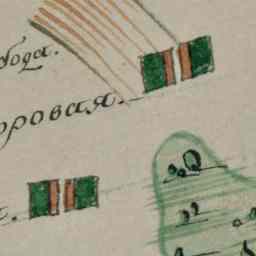 бода.
оровая.